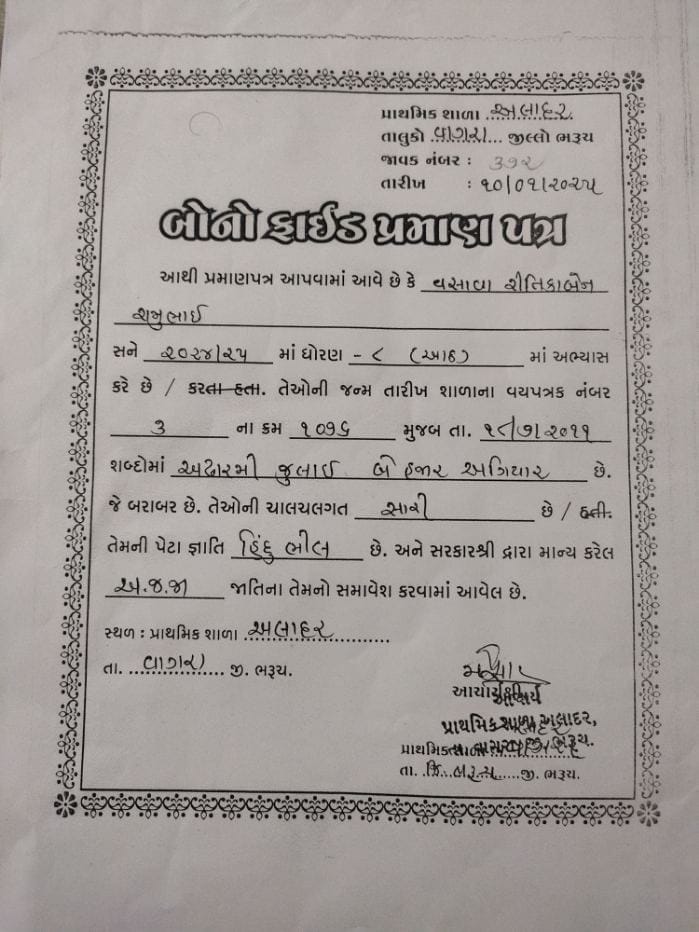 પ્રાથમિક શાળા અલાદર
તાલુકો વાગરા જીલ્લો ભરૂચ
જાવક નંબર : ૩૭૨
તારીખ : ૧૦/૦૧/૨૦૨૫
બોનોફાઈડ પ્રમાણ પત્ર
આથી પ્રમાણપત્ર આપવામાં આવે છે કે વસાવા રીતિકાબેન
રાજુભાઈ
સને ૨૦૨૪/૨૫ માં ધોરણ - ૮ (આઠ) માં અભ્યાસ
કરે છે / કરતા હતા. તેઓની જન્મ તારીખ શાળાના વયપત્રક નંબર
૩ ના ક્રમ ૧૦૭૬ મુજબ તા. ૧૮/૭/૨૦૧૧
શબ્દોમાં અઢારમી જુલાઈ બે હજાર અગિયાર છે.
જે બરાબર છે. તેઓની ચાલચલગત સારી છે / હતી.
તેમની પેટા જ્ઞાતિ હિંદુ ભીલ છે. અને સરકારશ્રી દ્રારા માન્ય કરેલ
અ.જ.જા જાતિના તેમનો સમાવેશ કરવામાં આવેલ છે.
સ્થળ : પ્રાથમિક શાળા અલાદર
તા. વાગરા જી. ભરૂચ.
આચાર્ય
પ્રાથમિક શાળા અલાદર,
પ્રાથમિક શાળા જી. ભરૂચ.
તા. જી. ભરૂચ.